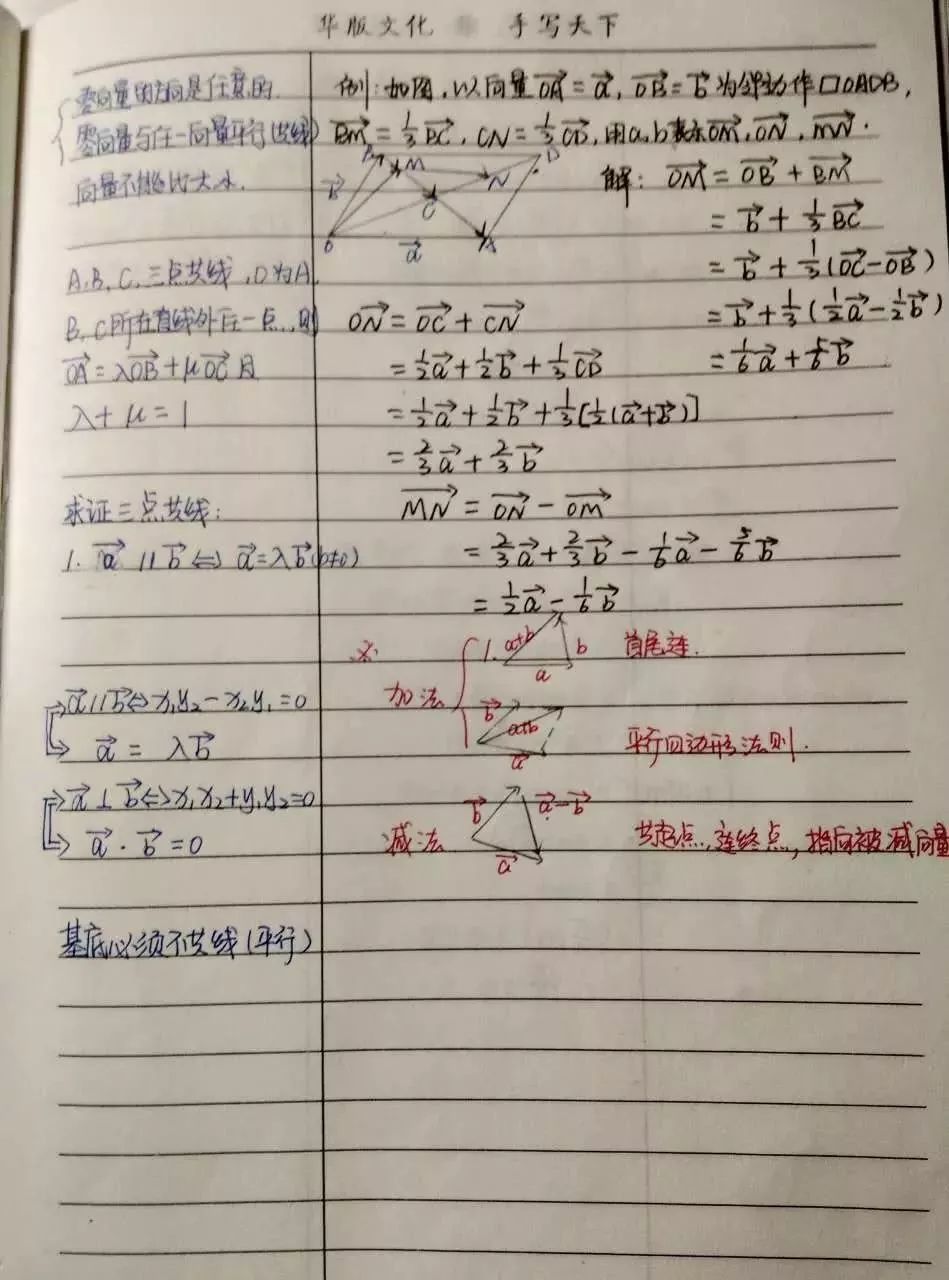 华版文化 手写天下
零向量的方向是任意的.
零向量与任一向量平行(共线)
向量不能比大小.
A,B,C,三点共线,O为A,
B,C所在直线外任一点,则
OA→=λOB→+μOC→且
λ+μ=1
求证三点共线:
1. a→∥b→⇔a→=λb→(b≠0)
a→∥b→⇔x₁y₂-x₂y₁=0
a→=λb→
a→⊥b→⇔x₁x₂+y₁y₂=0
a→·b→=0
基底必须不共线(平行)
例:如图,以向量OA→=a→,OB→=b→为邻边作□OADB,
BM→=1/3BC→,CN→=1/3CD→,用a,b表示OM→,ON→,MN→.
B M D
b→ N
C
O a→ A
解:OM→=OB→+BM→
=b→+1/3BC→
=b→+1/3(OC→-OB→)
=b→+1/3(1/2a→-1/2b→)
=1/6a→+5/6b→
ON→=OC→+CN→
=1/2a→+1/2b→+1/3CD→
=1/2a→+1/2b→+1/3[1/2(a→+b→)]
=2/3a→+2/3b→
MN→=ON→-OM→
=2/3a→+2/3b→-1/6a→-5/6b→
=1/2a→-1/6b→
加法
1. a+b b 首尾连.
a
b→ a+b 平行四边形法则.
a→
减法 b→ a→-b→ 共起点,连终点,指向被减向量
a→